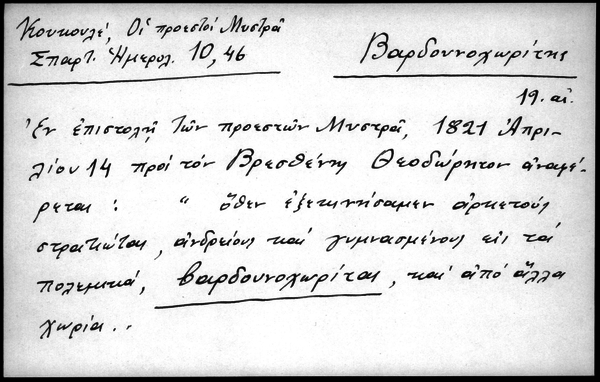 Κουκουλέ, Οἱ προεστοὶ Μυστρᾶ
Σπαρτ. Ἡμερολ. 10, 46
Βαρδουνοχωρίτης
19. αἰ.
Ἐν ἐπιστολῇ τῶν προεστῶν Μυστρᾶ, 1821 Ἀπρι-
λίου 14 πρὸς τὸν Βρεσθένης Θεοδώρητον ἀναφέ-
ρεται : " ὅθεν ἐξεκινήσαμεν ἀρκετοὺς
στρατιώτας, ἀνδρείους καὶ γυμνασμένους εἰς τὰ
πολεμικά, βαρδουνοχωρίτας, καὶ ἀπὸ ἄλλα
χωρία . .